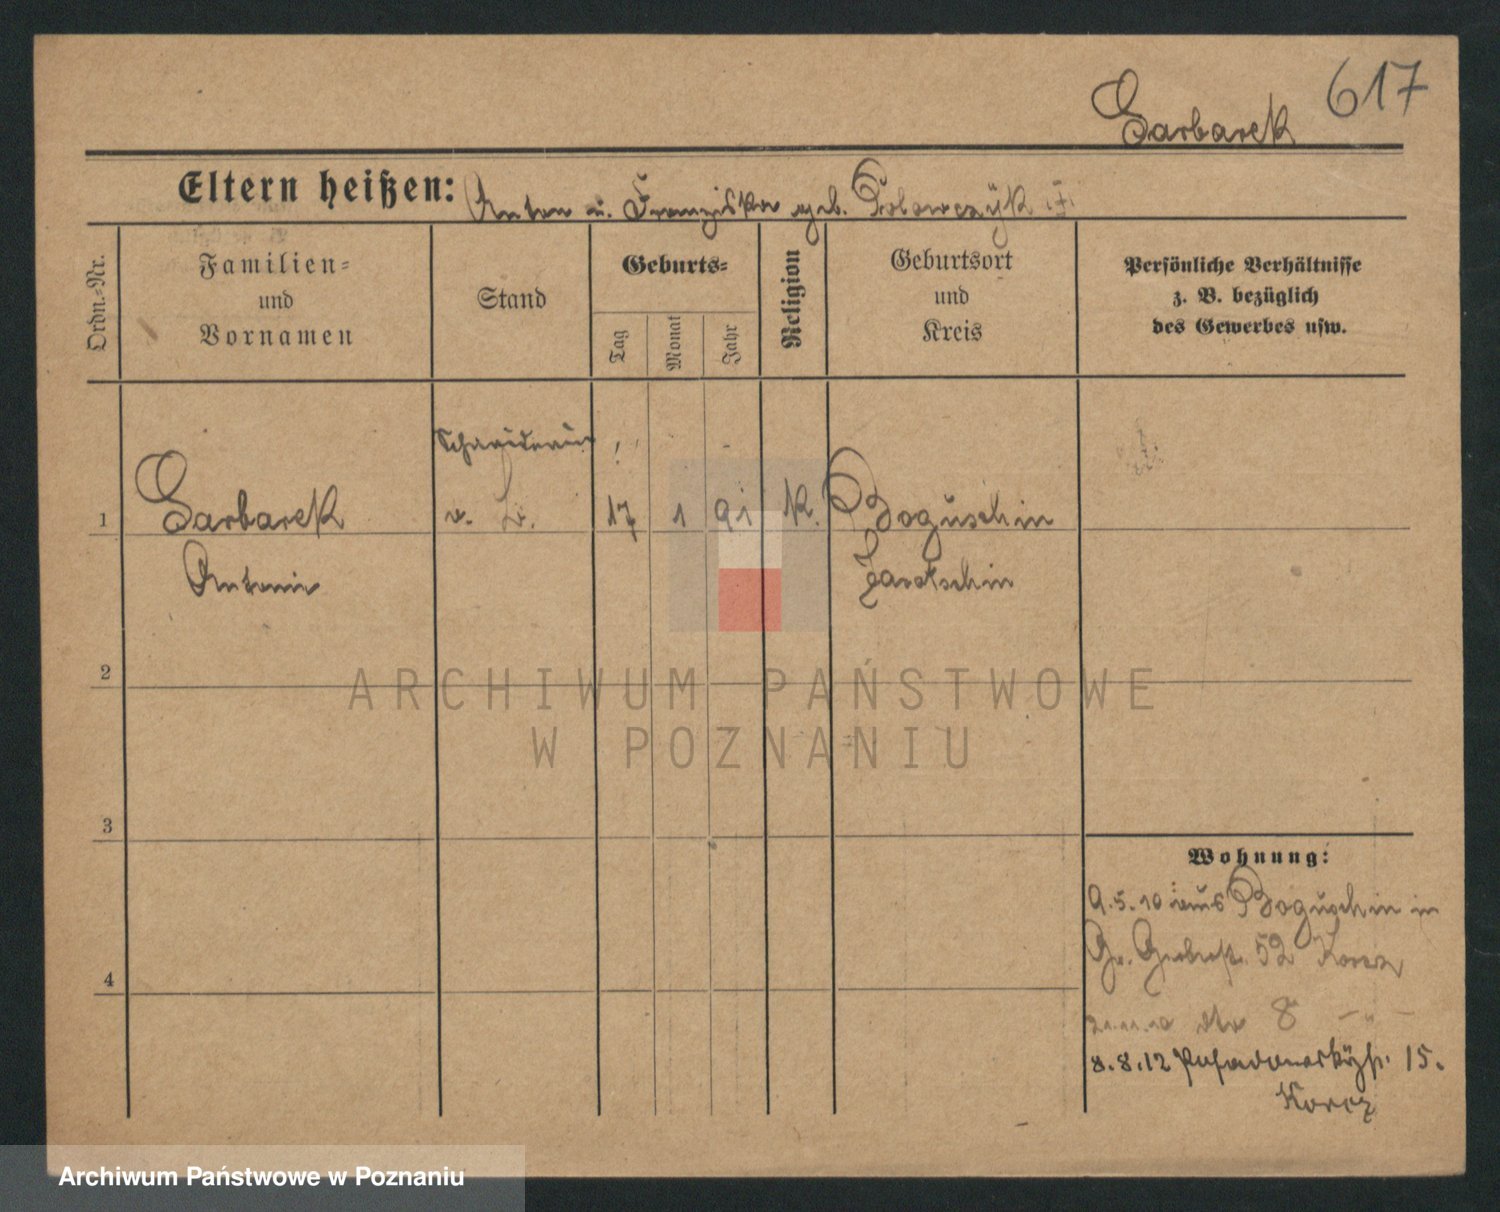 617
Garbarek
Eltern heißen: Anton u. Franziska geb.
Ordn.-Nr.
Familien-
und
Vornamen
Stand
Geburts-
Tag
Monat
Jahr
Religion
Geburtsort
und
Kreis
Persönliche Verhältnisse
z. B. bezüglich
des Gewerbes usw.
Schneiderin
1 Garbarek v. L. 17 1 91 k. Boguschin
Antonie Jarotschin
2
ARCHIWUM PAŃSTWOWE
W POZNANIU
3
Wohnung:
9.5.10 aus Boguschin in
Gr. Gerberstr. 52 Korcz
4
21.11.10 dto 8 - " -
8.8.12 15.
Korcz
Archiwum Państwowe w Poznaniu